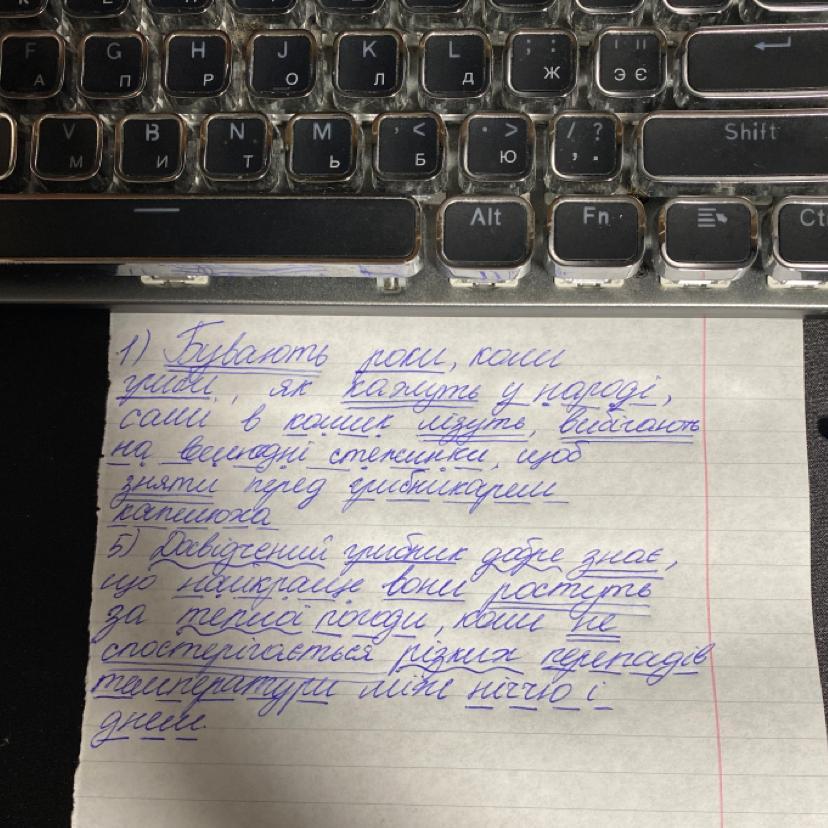 F А
G П
H Р
J О
K Л
L Д
; : Ж
' " Э Є
V М
B И
N Т
M Ь
, < Б
. > Ю
/ ? , .
Shift
Alt
Fn
Ct
1) Бувають роки, коли
гриби, як кажуть у народі,
самі в кошик лізуть, вибігають
на вологодні стежинки, щоб
зняти перед грибникарем
капелюха
5) Досвідчений грибник добре знає,
що найкраще вони ростуть
за теплої погоди, коли не
спостерігається різких перепадів
температури між ніччю і
днем.